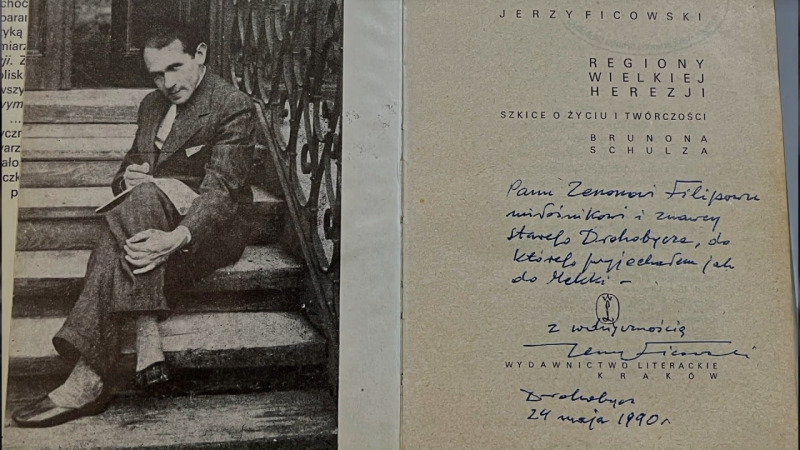 choc
baran
tyką
miarz
ji. Z
olisk
wszy
wym
...
yczn
warz
ało
czk
p
JERZY FICOWSKI
REGIONY
WIELKIEJ
HEREZJI
SZKICE O ŻYCIU I TWÓRCZOŚCI
BRUNONA
SCHULZA
Panu Zenonowi Filipowu
miłośnikowi i znawcy
starego Drohobycza, do
którego przyjechałem jak
do Mekki –
WL
z wdzięcznością
Jerzy Ficowski
WYDAWNICTWO LITERACKIE
KRAKÓW
Drohobycz
24 maja 1990 r.